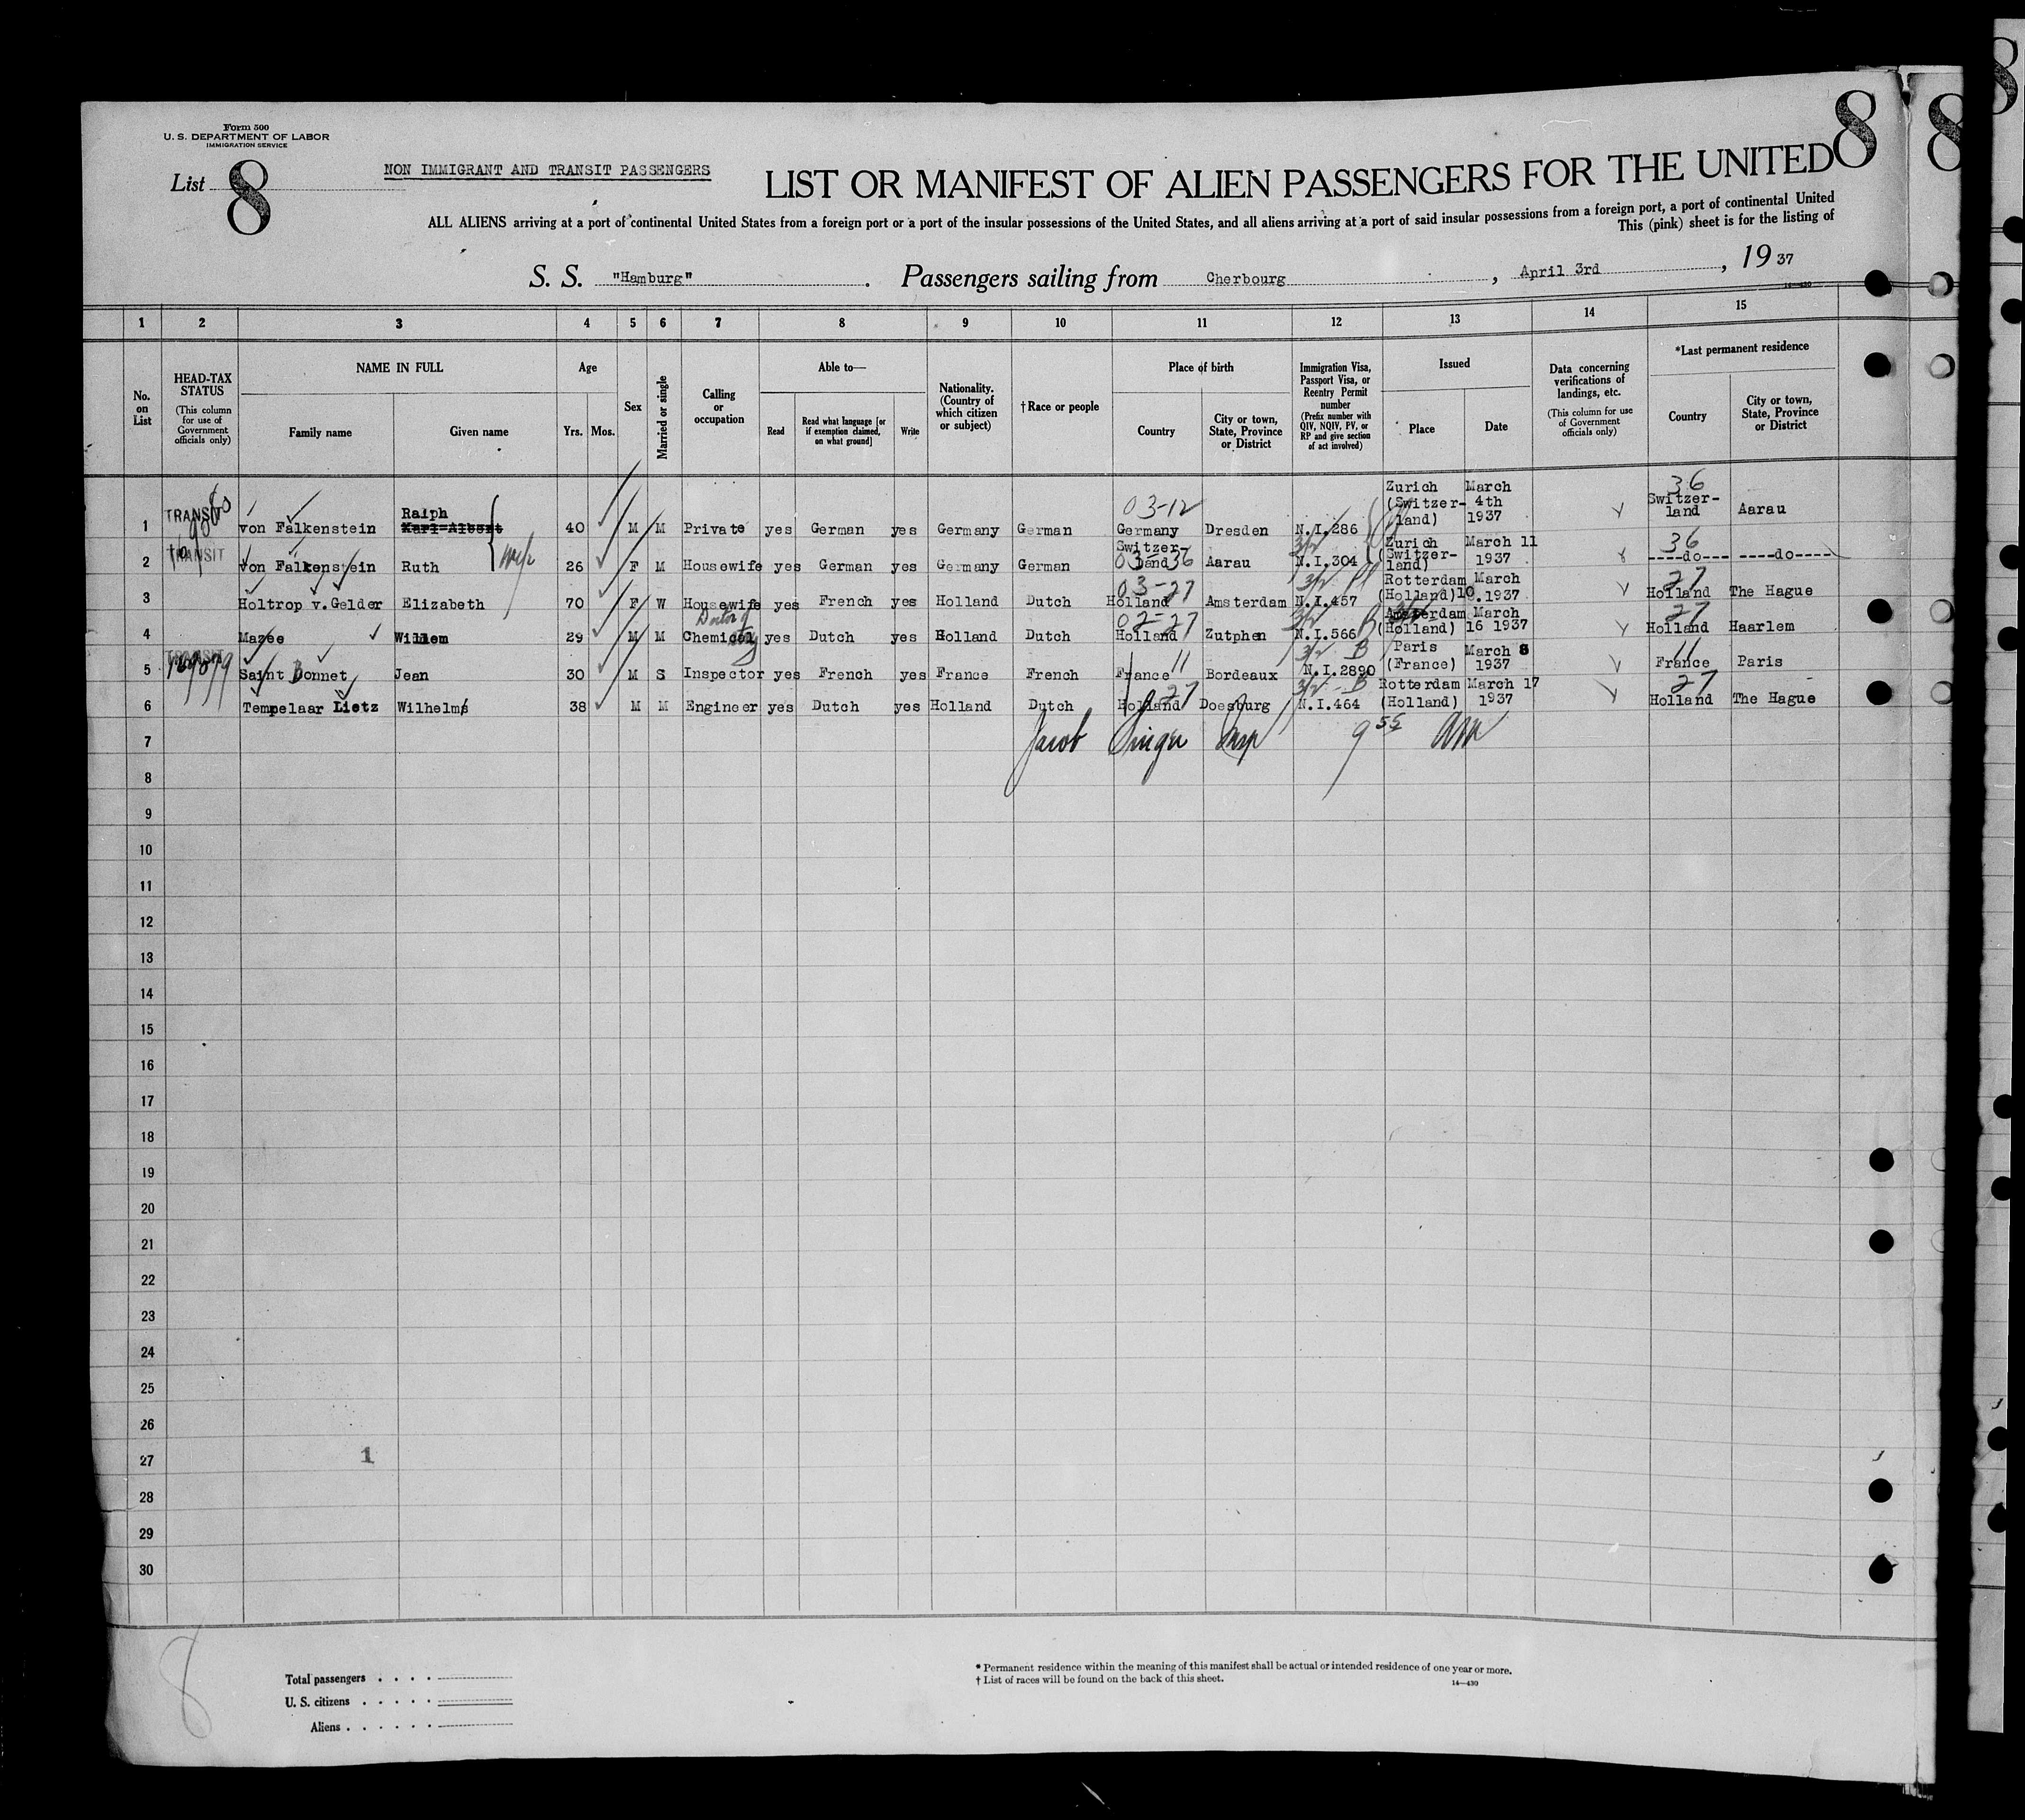 Form 500
U. S. DEPARTMENT OF LABOR
IMMIGRATION SERVICE
List 8
NON IMMIGRANT AND TRANSIT PASSENGERS
LIST OR MANIFEST OF ALIEN PASSENGERS FOR THE UNITED
8
8
8
ALL ALIENS arriving at a port of continental United States from a foreign port or a port of the insular possessions of the United States, and all aliens arriving at a port of said insular possessions from a foreign port, a port of continental United
This (pink) sheet is for the listing of
S. S. "Hamburg". Passengers sailing from Cherbourg, April 3rd, 19 37
1 2 3 4 5 6 7 8 9 10 11 12 13 14 15
No. on List
HEAD-TAX STATUS (This column for use of Government officials only)
NAME IN FULL Family name Given name
Age Yrs. Mos.
Sex
Married or single
Calling or occupation
Able to— Read Read what language [or if exemption claimed, on what ground] Write
Nationality. (Country of which citizen or subject)
†Race or people
Place of birth Country City or town, State, Province or District
Immigration Visa, Passport Visa, or Reentry Permit number (Prefix number with QIV, NQIV, PV, or RP and give section of act involved)
Issued Place Date
Data concerning verifications of landings, etc. (This column for use of Government officials only)
*Last permanent residence Country City or town, State, Province or District
1 TRANSIT von Falkenstein Ralph Karl-Albert 40 M M Private yes German yes Germany German 03-12 Germany Dresden N.I.286 Zurich (Switzer-land) March 4th 1937 36 Switzer-land Aarau
2 TRANSIT von Falkenstein Ruth wife 26 F M Housewife yes German yes Germany German Switzer-land 03-36 Aarau 3/2 N.I.304 Zurich (Switzer-land) March 11 1937 36 ----do--- ----do-----
3 Holtrop v.Gelder Elizabeth 70 F W Housewife yes French yes Holland Dutch 03-27 Holland Amsterdam 3/2 N.I.457 Rotterdam (Holland) March 10.1937 27 Holland The Hague
4 Mazee Willem 29 M M Doctor of Chemical yes Dutch yes Holland Dutch 02-27 Holland Zutphen 3/2 N.I.566 Amsterdam (Holland) March 16 1937 27 Holland Haarlem
5 TRANSIT 169079 Saint Bonnet Jean 30 M S Inspector yes French yes France French France 11 Bordeaux 3/2 B N.I.2890 Paris (France) March 8 1937 11 France Paris
6 Tempelaar Lietz Wilhelm 38 M M Engineer yes Dutch yes Holland Dutch 27 Holland Doesburg 3/2 B N.I.464 Rotterdam (Holland) March 17 1937 27 Holland The Hague
7 Jacob Singer Insp 9 55 am
8
9
10
11
12
13
14
15
16
17
18
19
20
21
22
23
24
25
26
27 1
28
29
30
8
Total passengers . . . .
U. S. citizens . . . . .
Aliens . . . . . .
* Permanent residence within the meaning of this manifest shall be actual or intended residence of one year or more.
† List of races will be found on the back of this sheet.
14—430